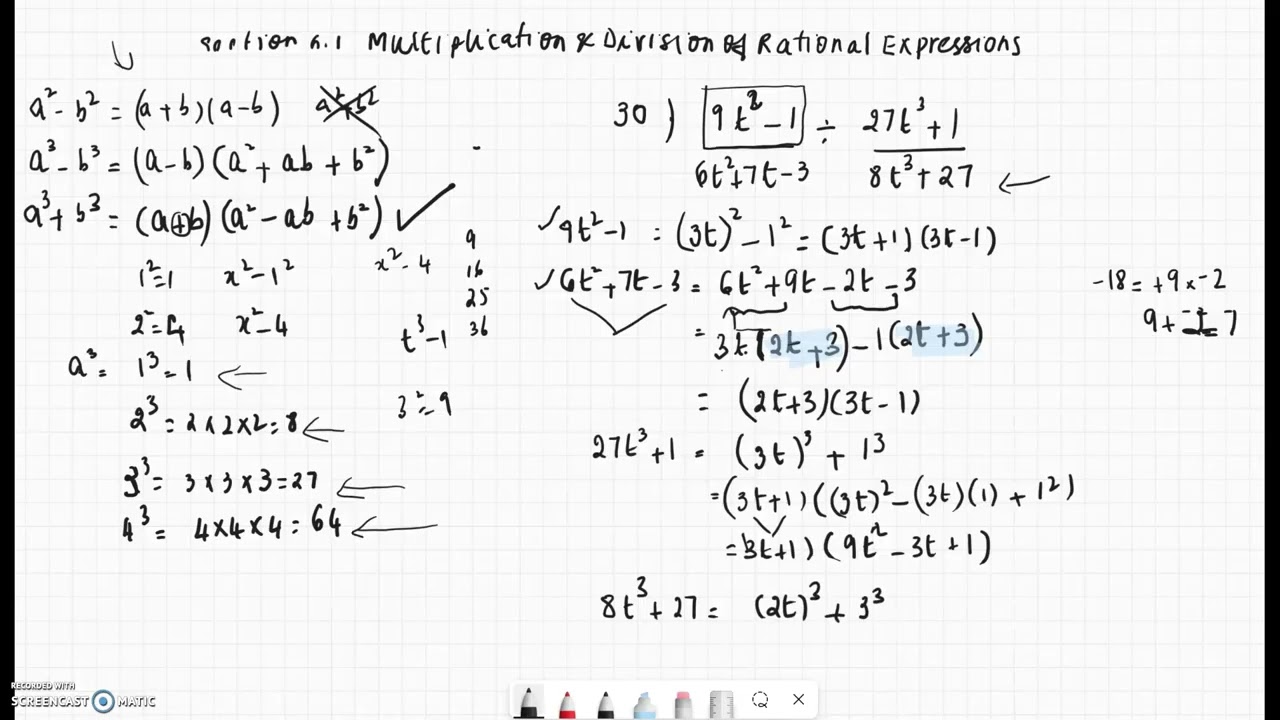 Section 6.1 Multiplication & Division of Rational Expressions
a² - b² = (a + b)(a - b) a² + b²
a³ - b³ = (a - b)(a² + ab + b²)
a³ + b³ = (a + b)(a² - ab + b²) ✓
1² = 1 x² - 1² x² - 4
2² = 4 x² - 4
t³ - 1
9
16
25
36
a³ = 1³ = 1
2³ = 2 × 2 × 2 = 8
3² = 9
3³ = 3 × 3 × 3 = 27
4³ = 4 × 4 × 4 = 64
30) 9t² - 1 ÷ 27t³ + 1
6t² + 7t - 3 8t³ + 27
✓ 9t² - 1 = (3t)² - 1² = (3t + 1)(3t - 1)
✓ 6t² + 7t - 3 = 6t² + 9t - 2t - 3
-18 = +9 × -2
9 + -2 = 7
= 3t(2t + 3) - 1(2t + 3)
= (2t + 3)(3t - 1)
27t³ + 1 = (3t)³ + 1³
= (3t + 1)((3t)² - (3t)(1) + 1²)
= 3t + 1)(9t² - 3t + 1)
8t³ + 27 = (2t)³ + 3³
RECORDED WITH
SCREENCAST MATIC